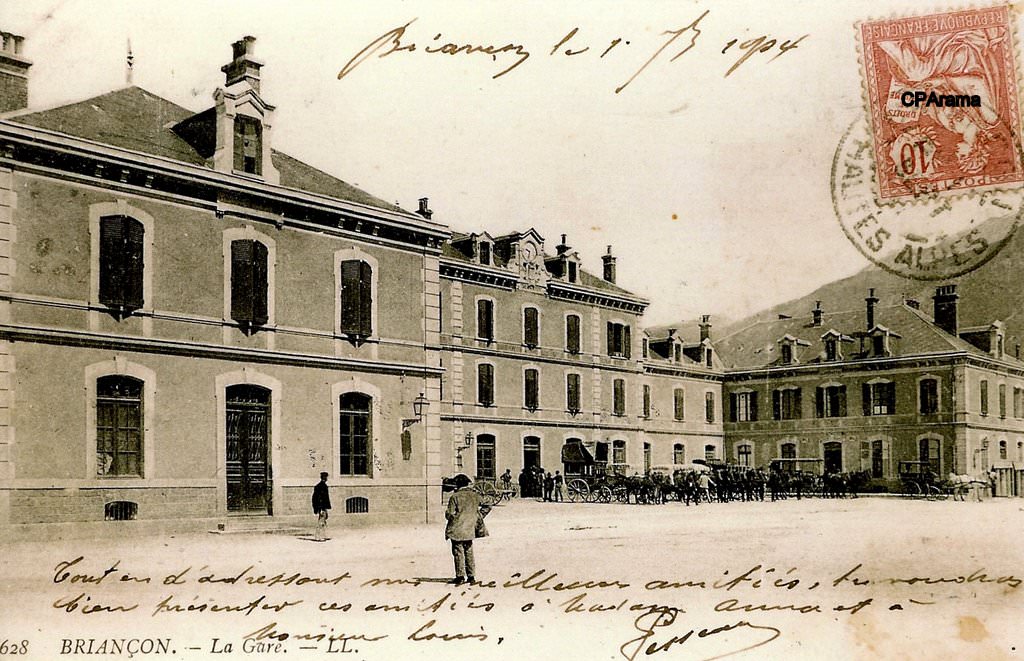 Briançon le 1er 7bre 1904
REPUBLIQUE FRANÇAISE
CPArama
DROITS
10
POSTES
HAUTES ALPES
Tout en t'adressant mes meilleures amitiés, tu voudras
bien présenter ces amitiés à Madame Anna et à
Monsieur Louis.
628 BRIANÇON. - La Gare. - LL.